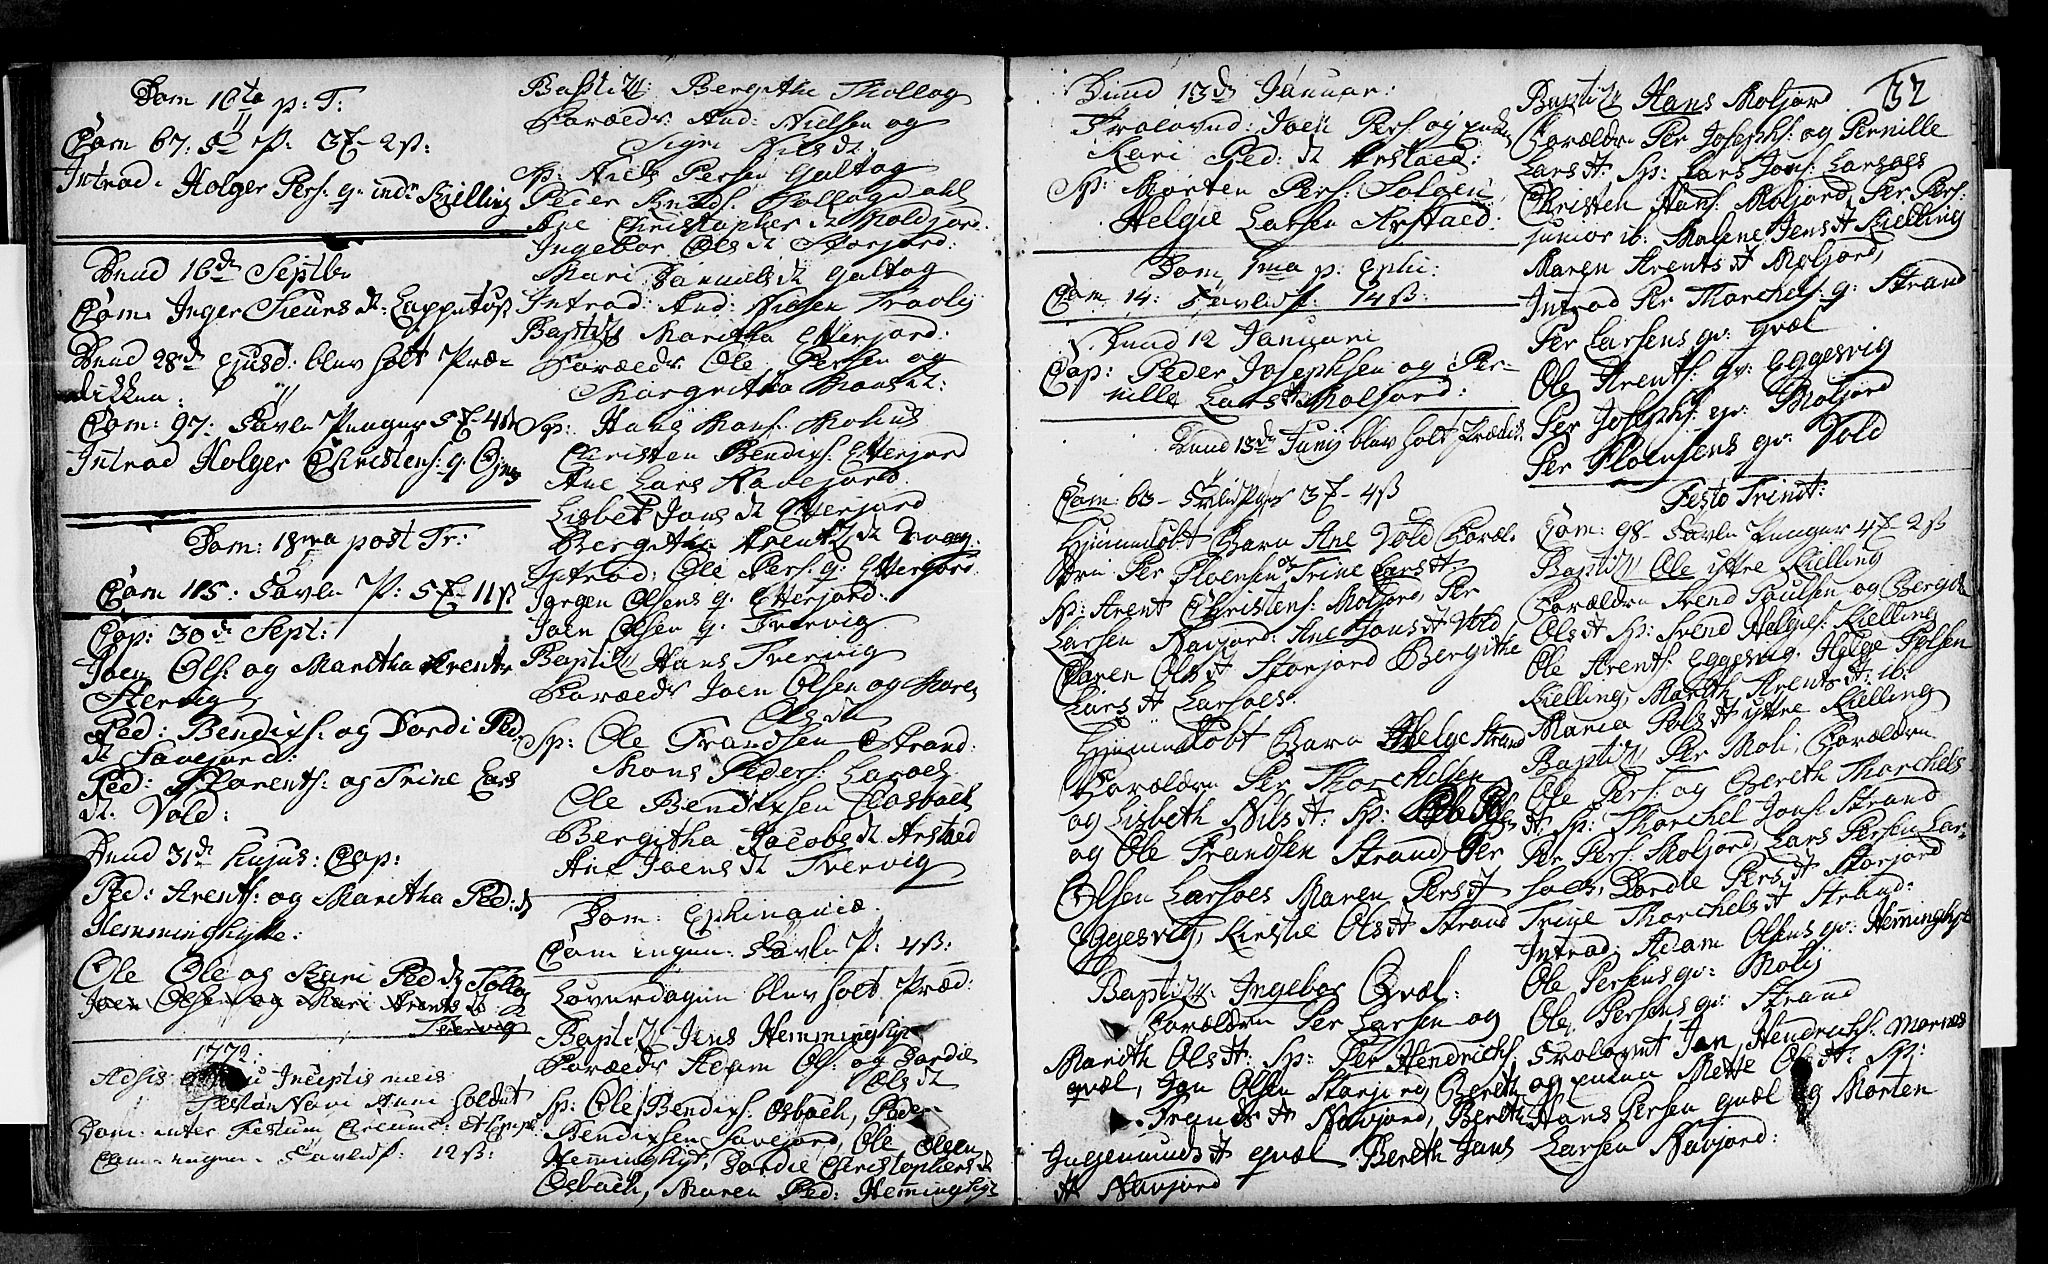 Dom 16ta p: T:
Com 67: P: 3 - 2 ß:
Introd. Holger Pers: q: Kielling
Dend 16de Septbr
Com: Inger Siurs dt:
Dend 28de Ejusd: blev holt Præ-
diken:
Com: 97: Tavle Penger 5 - 4 ß
Introd Holger Christens: q:
Dom: 18va post Tr:
Com 115: Tavle P: 5 - 11 ß
Cop: 30de Sept:
Joen Ols: og Maritha Arents
Ped: Bendixs: og Dordi Ped
dt
Ped: og Trine Lars
dt: Vold:
Dend 31de hujus: Cop:
Ped: Arents: og Maritha Ped: d
Hemminghytte:
Ole Ole og Ped d
Joen Olsen og Mari Arents d
Tvervig
1772:
Adsis Inceptis meis
Novi Anni
Dom: inter Festum Circumc: et
Com: ingen. Tavle P. 12 ß:
Baptiz: Bergithe Tollog
Foræld: And: Nielsen og
Sigri Nils dt:
Sp: Niels Persen Galtog
Peder Tollogdahl
Ane Christopher dt Moldjord
Ingebor Ols dt Storjord:
Mari Daniels dt Galtog
Introd: And: Nielsen
Baptiz Maritha Etterjord:
Foræld: Ole Persen og
Margritha Mons dt:
Sp: Hans Hans:
Christen Bendixs: Etterjord
Ane Lars
Lisbet Jons dt Etterjord
Bergithe Arents dt
Introd: Ole Pers: q: Etterjord
Jørgen Olsens q: Etterjord:
Joen Olsen q: Tvervig
Baptiz Hans Tvervig
Foræld: Joen Olsen og Maren
Ols dt
Sp: Ole Frandsen Strand:
Mons Peders: Larsoes
Ole Bendixsen Osbach
Bergitha Jacobs dt Arstad
Ane Joens dt Tvervig
Dom: Ephiphaniæ.
Com ingen: Tavle P: 4 ß:
Løverdagen blev holt Præd:
Baptiz Jens Hemminghyt
Foræld: Adam Ols: og Dordie
Ols dt
Sp: Ole Bendixs: Osbach, Peder
Bendixsen Savejord, Ole Olsen
Hemminghyt, Dordie Christophers d
Osbach, Maren Ped: Hemminghyt
Dend 13de Januar:
Trolovd: Joen Pers: og
Kari Ped: dt Arstad:
Sp: Morten Pers: Soløen,
Helgie Larsen Arstaed:
Dom 1ma p: Ephi:
Com 14: Tavle P: 14 ß:
Dend 12 Januari
Cop: Peder Josephsen og Per-
nille Lars dt Moljord:
Dend 13de Junij blev holt Prædik:
Com: 63 - 3 - 4 ß
Hjemmedøbt Barn Ane Vold Foræl-
dre Per og Trine Lars dt:
Sp: Arent Christens: Moljord, Per
Larsen Navjord: Ane Jons dt Vold,
Karen Ols dt Storjord Bergithe
Lars dt Larsoes:
Hjemmedøbt Barn Helge Strand
Forældre Per Thorchilsen
og Lisbeth Nils dt: Sp:
og Ole Frandsen Strand, Per
Olsen Larsoes Maren Pers dt
Eggesvig, Kirstie Ols dt Strand
Baptiz: Ingebor Qvæl:
Forældre Per Larsen og
Marith Ols dt: Sp: Per Hendrichs:
qvæl, Jon Olsen Storjord, Bereth
Frands dt Navjord, Bereth
Ingemunds dt qvæl Bereth Jons
dt Navjord
32
Baptiz Hans Moljord
Forældre Per Josephs: og Pernille
Lars dt: Sp: Lars Jons: Larsoes
Christen Hans: Moljord, Per Pers:
junior ib: Malene Jens dt Kielling
Maren Arents dt Moljord,
Introd Per Thorchels: q: Strand
Per Larsens qv: qvæl
Ole Arents: qv: Eggesvig
Per Josephs: qv: Moljord
Per qv: Vold
Festo Trinit:
Com: 98 - Tavle Penger 4 - 2 ß
Baptiz Ole ytre Kielling
Forældre Svend Poulsen og Bergit
Ols dt Sp: Svend Helges: Kielling
Ole Arents: Eggesvig. Helge Polsen
Kielling, Marith Arents dt: ib:
Maria Pols dt ytre Kielling
Baptiz Per Moli, Forældre
Ole Pers: og Bereth Thorchels
dt: Sp: Thorchel Jons: Strand
Per Pers: Moljord, Lars Persen Lar-
soes, Dordie Pers dt Storjord
Trine Thorchels dt Strand:
Introd: Adam Olsens qv: Hemminghyt
Ole Persens qv: Molij
Ole Persens qv: Strand
Trolovet Jon Hendrichs: Mornes
og Mette Ols dt: Sp:
Hans Persen qvæl og Morten
Larsen Navjord: